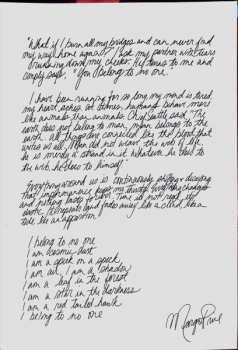 "What if I burn all my bridges and can never find
my way home again?" I ask my partner with tears
running down my cheeks. He turns to me and
simply says, "You belong to no one."
I have been running for so long my mind is tired
my heart aches. At times, humans behave more
like animals than animals. Chief Seattle said "The
earth does not belong to man, man belongs to the
earth. All things are connected like the blood that
unites us all. Man did not weave the web of life,
he is merely a strand in it. Whatever he does to
the web, he does to himself."
Everything around us is continuously and decaying
that impermanence keeps my
and nothing lasts forever. Time is not real, it's
like a
like an apparition.
I belong to no one
I am cosmic dust
I am a speck on a speck
I am air, I am a shadow
I am a leaf in the forest
I am a in the darkness
I am a red tailed hawk
I belong to no one